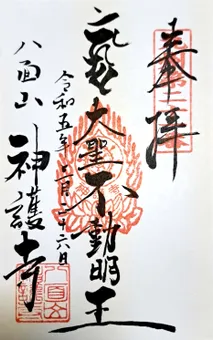 奉拝
大聖不動明王
令和五年 二月二十六日
八面山 神護寺